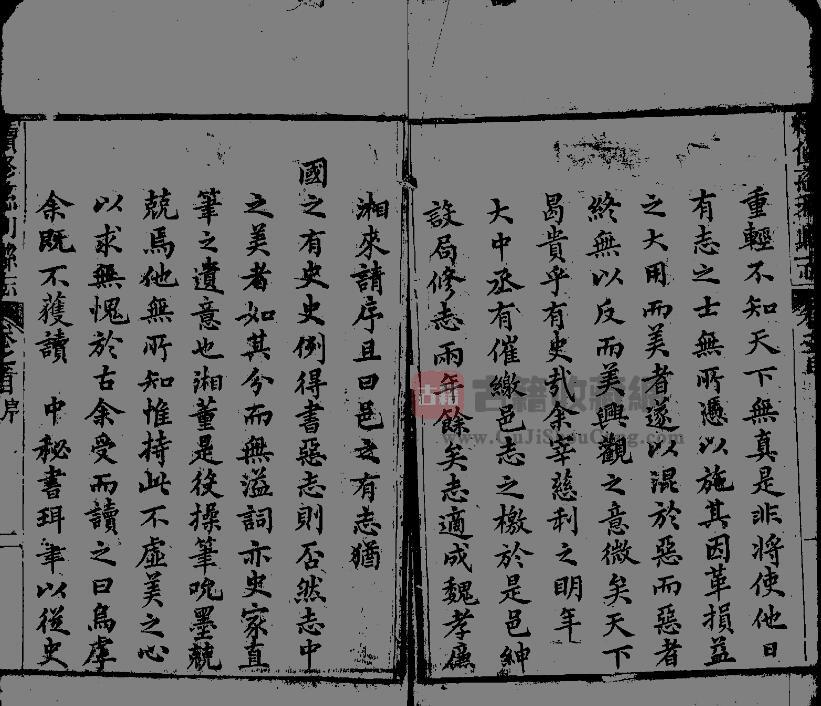 重輕不知天下無真是非將使他日
有志之士無所憑以施其因革損益
之大用而美者遂以混於惡而惡者
終無以反而美興觀之意微矣天下
曷貴乎有史哉余宰慈利之明年
大中丞有催繳邑志之檄於是邑紳
設局修志兩年餘矣志適成魏孝廉
湘來請序且曰邑之有志猶
國之有史史例得書惡志則否然志中
之美者如其分而無溢詞亦史家直
筆之遺意也湘董是役操筆吮墨兢
兢焉他無所知惟持此不虛美之心
以求無愧於古余受而讀之曰烏虖
余既不獲讀 中秘書珥筆以從史
續修慈利縣志 卷之首 序
古籍收藏網
www.GuJiShouCang.com